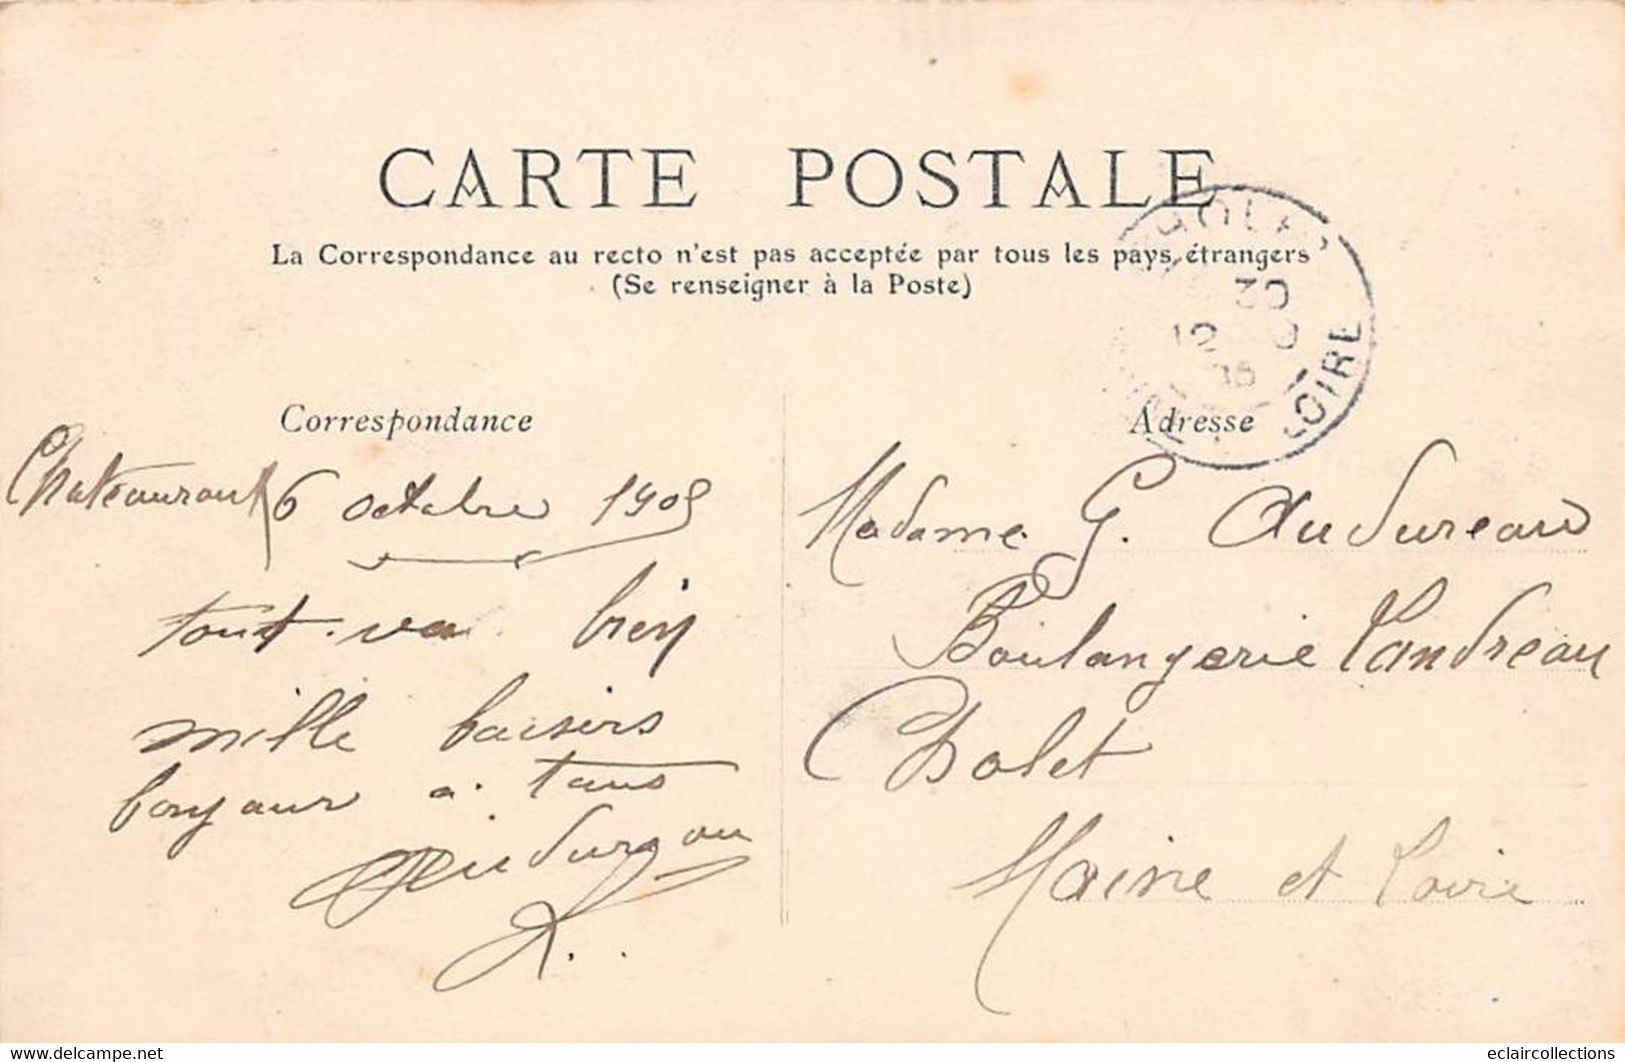 CARTE POSTALE
La Correspondance au recto n'est pas acceptée par tous les pays étrangers
(Se renseigner à la Poste)
Correspondance
Chateauroux 6 octobre 1905
tout va bien
mille baisers
bonjour a tous
Audureau
Adresse
Madame G. Audureau
Boulangerie Landreau
Cholet
Maine et Loire
CHOLET
30
LOIRE
eclaircollections